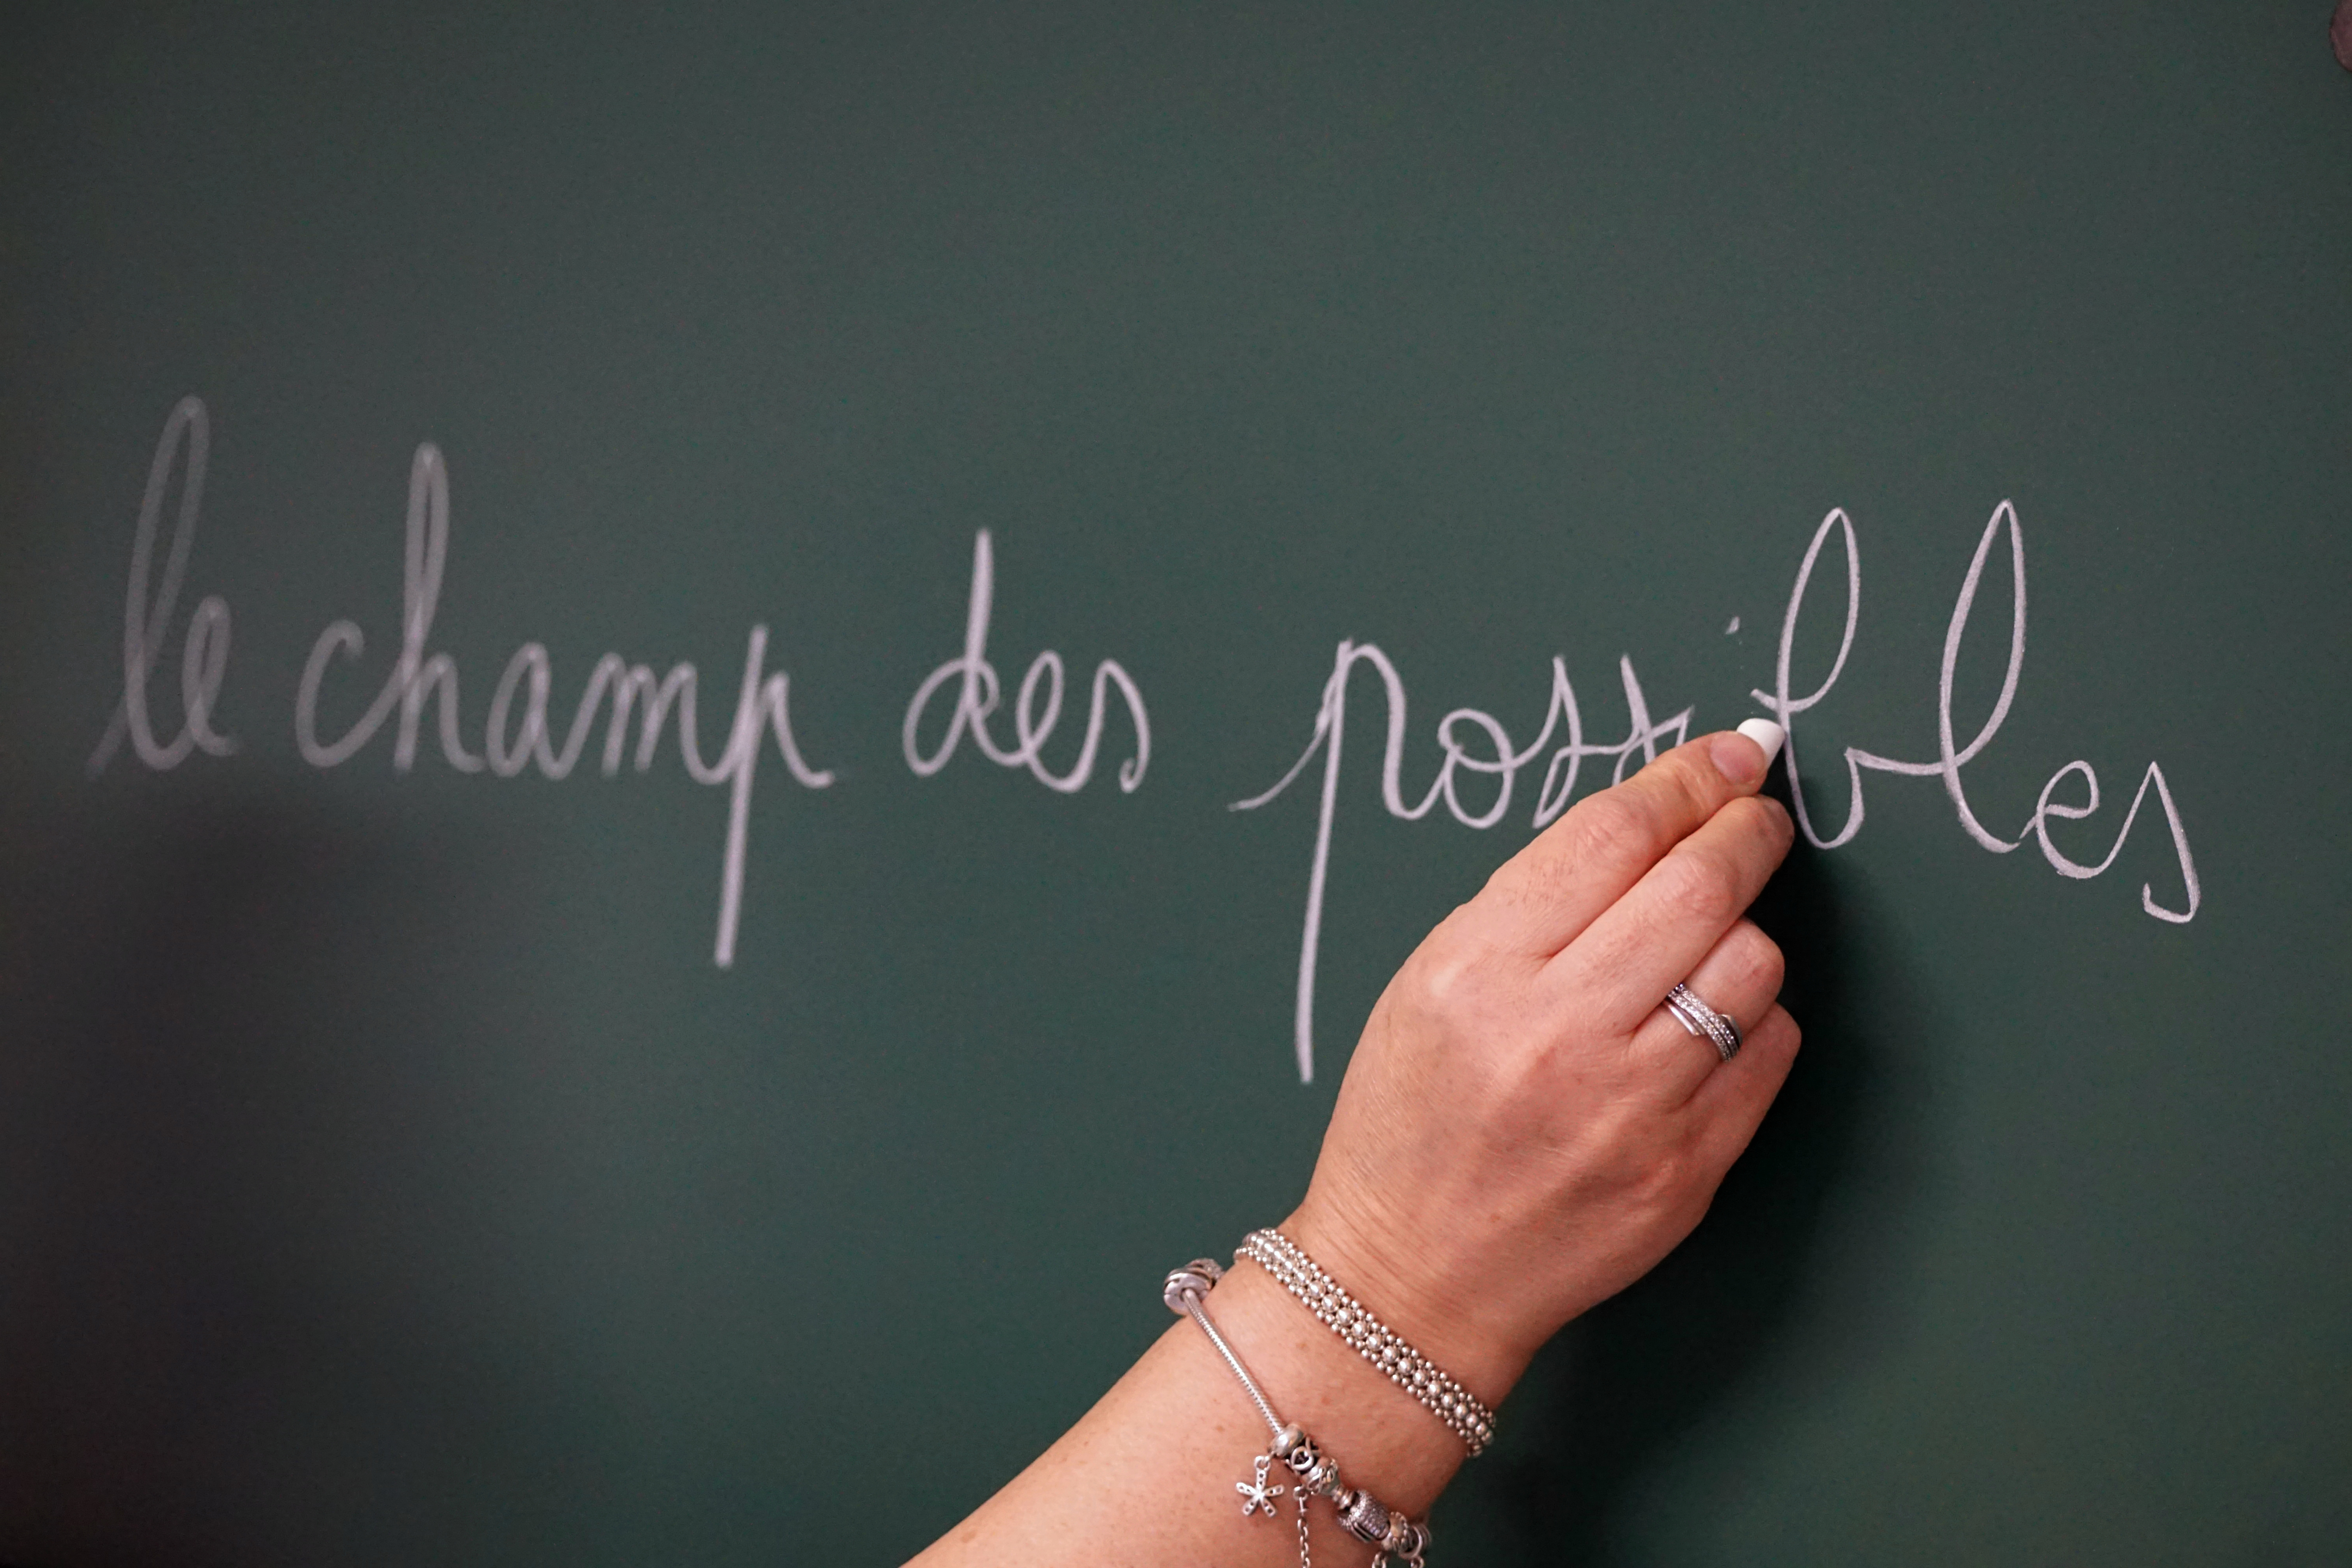 le champ des possibles